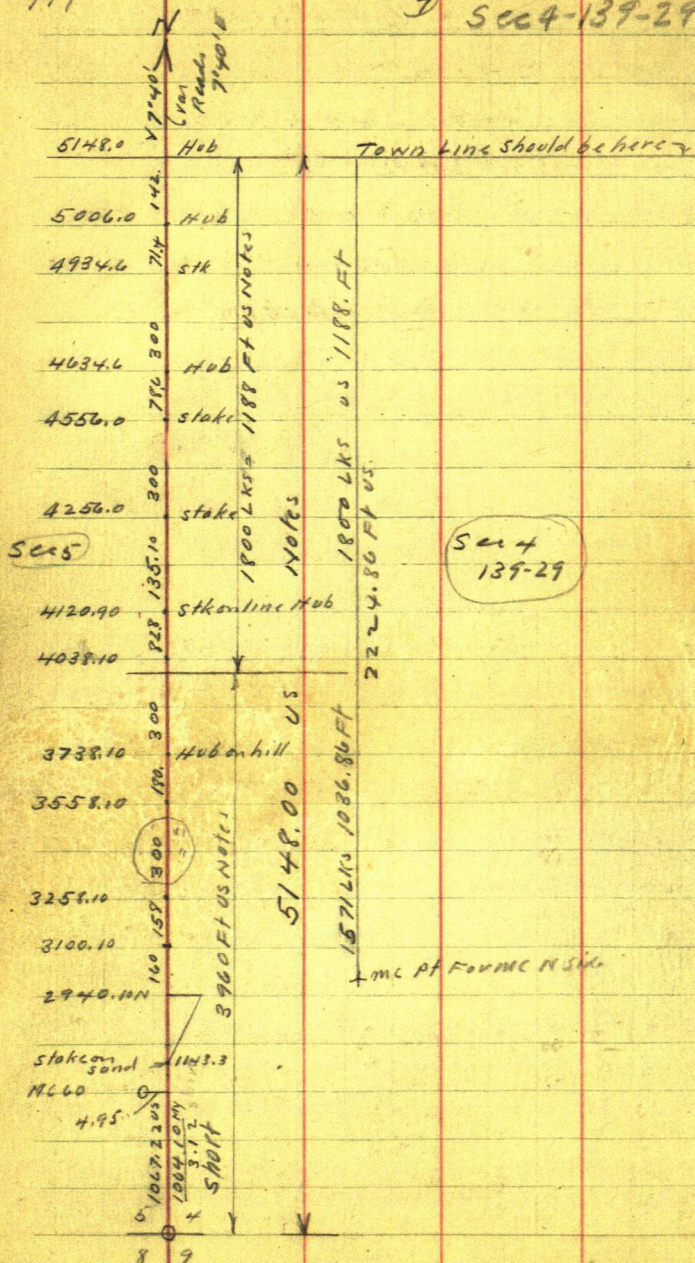 Sec 4-139-29
N
V 7°40'
(Var
Reads
7°40'E
5148.0 Hub Town Line Should be here
142.
5006.0 Hub
71.4
4934.6 stk
300
4634.6 Hub
78.6
4556.0 stake
300
4256.0 stake
135.10
4120.90 Stk on line Hub
82.8
4038.10
300
3738.10 Hub on hill
180.
3558.10
300
3258.10
158
3100.10
160
2940.10N
Stake on
sand 1143.3
MC 60
4.95
1067.22 US
1064.10 My
3.12
Short
5 4
8 9
Sec 5
Sec 4
139-29
1800 LKS = 1188 Ft US Notes
3960 Ft US Notes
5148.00 US Notes
1800 LKS US 1188. Ft
2224.86 Ft US.
1571 LKS 1036.86 Ft
mc Pt For mc N Side